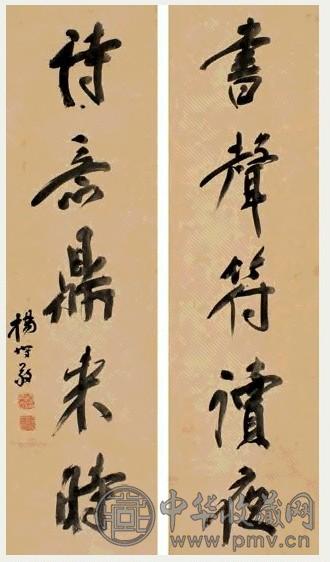 書聲符讀夜
詩意鼎来時
楊守敬
中华收藏网
www.pmv.cn